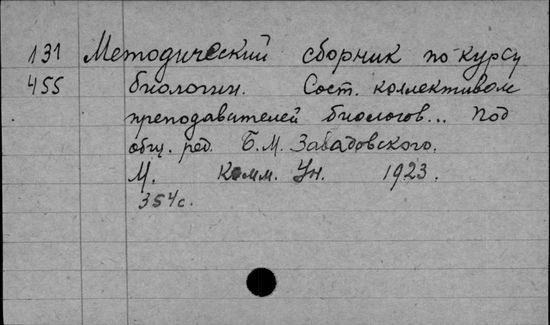 131 Методический сборник по курсу
455 биологии. Сост. коллективом
преподавателей биологов... Под
общ. ред. Б.М. Завадовского.
М. Комм. Ун. 1923.
354с.